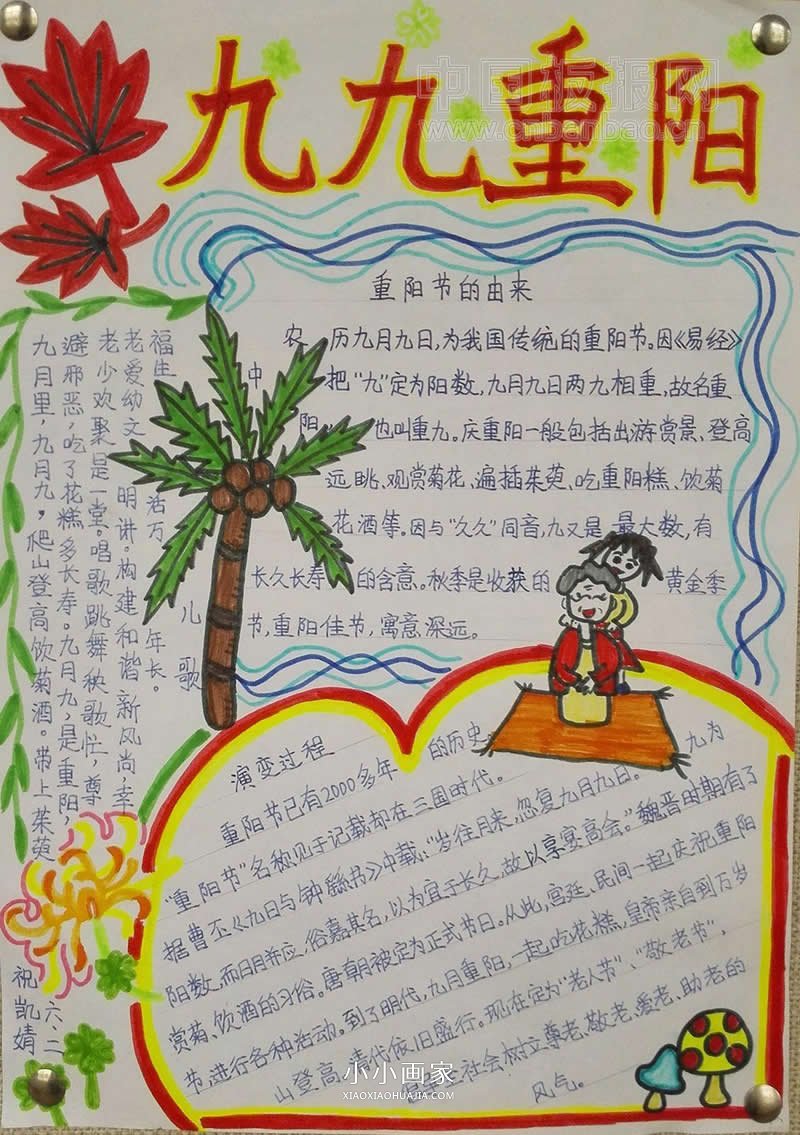 九九重阳
中国板报网
www.cnbanbao.cn
重阳节的由来
农 历九月九日,为我国传统的重阳节。因《易经》
中 把“九”定为阳数,九月九日两九相重,故名重
阳 也叫重九。庆重阳一般包括出游赏景、登高
远眺、观赏菊花、遍插茱萸、吃重阳糕、饮菊
花酒等。因与“久久”同音,九又是最大数,有
长久长寿的含意。秋季是收获的黄金季
节,重阳佳节,寓意深远。
儿歌
九月里,九月九,爬山登高饮菊酒。带上茱萸
避邪恶,吃了花糕多长寿。九月九,是重阳,
老少欢聚是一堂。唱歌跳舞秧歌忙,尊
老爱幼文明讲。构建和谐新风尚,幸
福生活万年长。
演变过程
重阳节已有2000多年的历史
“重阳节”名称见于记载却在三国时代。
据曹丕《九日与钟繇书》中载:“岁往月来,忽复九月九日。九为
阳数,而日月并应,俗嘉其名,以为宜于长久,故以享宴高会。”魏晋时期有了
赏菊、饮酒的习俗。唐朝被定为正式节日。从此,宫廷、民间一起庆祝重阳
节,进行各种活动。到了明代,九月重阳,一起吃花糕,皇帝亲自到万岁
山登高,清代依旧盛行。现在定为“老人节”、“敬老节”,
社会树立尊老、敬老、爱老、助老的
风气。
六、二
祝凯婧
小小画家
XIAOXIAOHUAJIA.COM